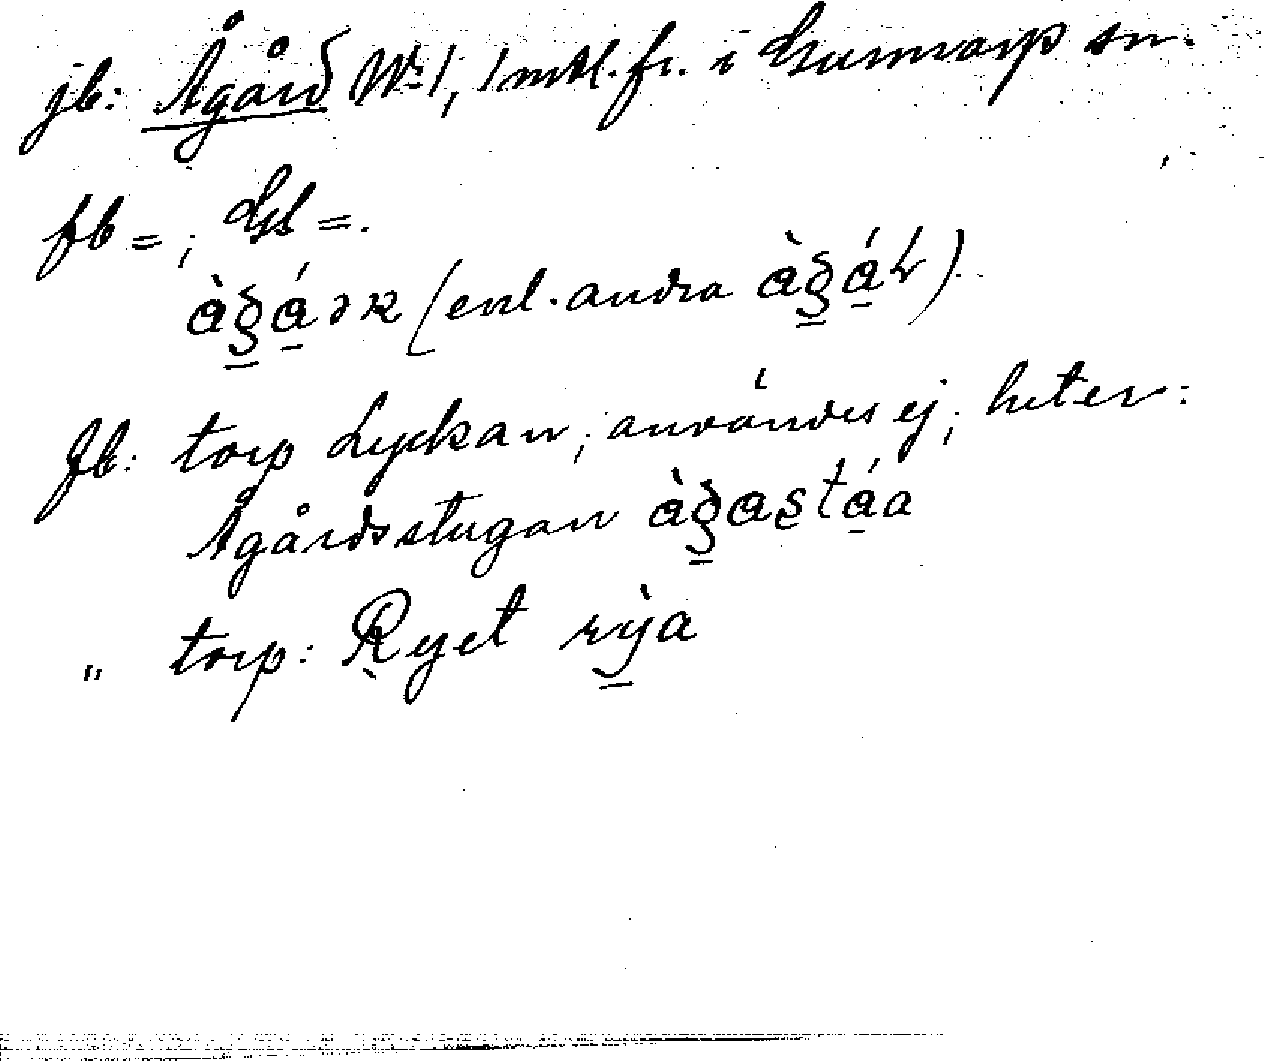 jb: Ågård No 1, 1 mtl. fr. i Gunnarp sn.
fb = ; Gst =.
àgáər (enl. andra àgár)
fb: torp Lyckan, användes ej, heter:
Ågårdsstugan àgastáa
" torp: Ryet rỳa